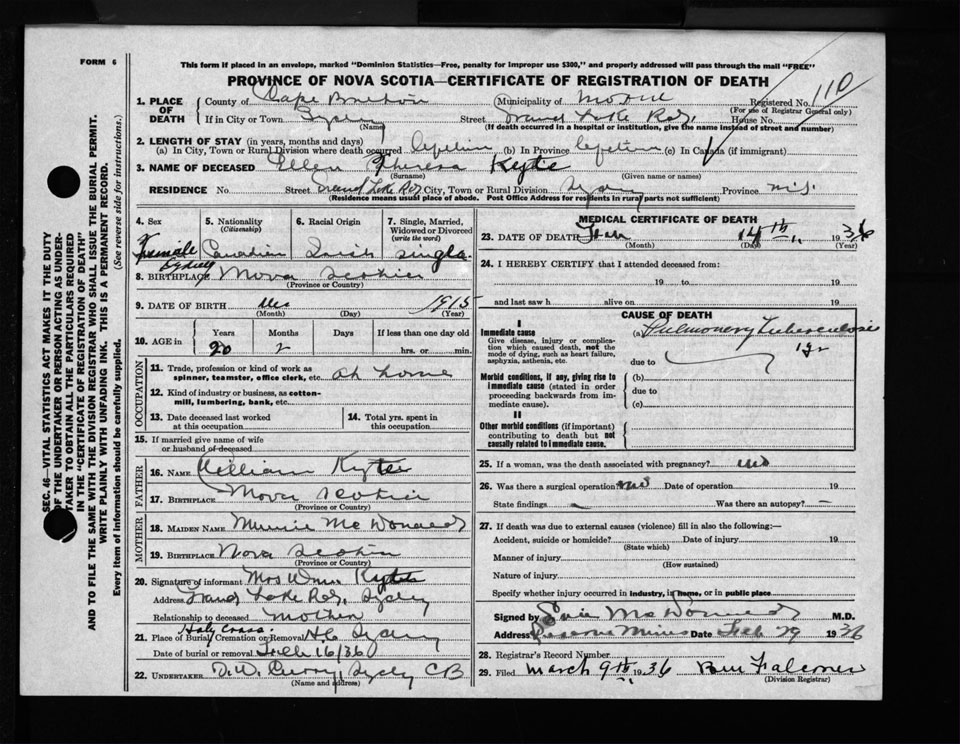 FORM 6
This form if placed in an envelope, marked "Dominion Statistics—Free, penalty for improper use $300," and properly addressed will pass through the mail "FREE"
PROVINCE OF NOVA SCOTIA—CERTIFICATE OF REGISTRATION OF DEATH
110
1. PLACE OF DEATH
County of Cape Breton Municipality of Registered No.
(For use of Registrar General only)
If in City or Town Sydney Street Grand Lake Rd. House No.
(Name) (If death occurred in a hospital or institution, give the name instead of street and number)
2. LENGTH OF STAY (in years, months and days)
(a) In City, Town or Rural Division where death occurred Lifetime (b) In Province Lifetime (c) In Canada (if immigrant)
3. NAME OF DECEASED Ellen Theresa Kyte
(Surname) (Given name or names)
RESIDENCE No. Street Grand Lake Rd. City, Town or Rural Division Sydney Province N.S.
(Residence means usual place of abode. Post Office Address for residents in rural parts not sufficient)
4. Sex
Female
5. Nationality
(Citizenship)
Canadian
6. Racial Origin
Irish
7. Single, Married, Widowed or Divorced
(write the word)
single
Sydney
8. BIRTHPLACE Nova Scotia
(Province or Country)
9. DATE OF BIRTH Dec 1915
(Month) (Day) (Year)
10. AGE in
Years Months Days If less than one day old
20 2 hrs. or min.
OCCUPATION
11. Trade, profession or kind of work as spinner, teamster, office clerk, etc. at home
12. Kind of industry or business, as cotton-mill, lumbering, bank, etc.
13. Date deceased last worked at this occupation
14. Total yrs. spent in this occupation
15. If married give name of wife or husband of deceased
FATHER
16. NAME William Kyte
17. BIRTHPLACE Nova Scotia
(Province or Country)
MOTHER
18. MAIDEN NAME Minnie McDonald
19. BIRTHPLACE Nova Scotia
(Province or Country)
20. Signature of informant Mrs Wm. Kyte
Address Grand Lake Rd, Sydney
Relationship to deceased mother
Holy Cross
21. Place of Burial, Cremation or Removal Sydney
Date of burial or removal Feb 16/36
22. UNDERTAKER Curry Sydney CB
(Name and address)
MEDICAL CERTIFICATE OF DEATH
23. DATE OF DEATH 14th 1936
(Month) (Day) (Year)
24. I HEREBY CERTIFY that I attended deceased from:
19 to 19
and last saw h alive on 19
CAUSE OF DEATH
I
Immediate cause
Give disease, injury or complication which caused death, not the mode of dying, such as heart failure, asphyxia, asthenia, etc.
(a) Pulmonary Tuberculosis
due to
Morbid conditions, if any, giving rise to immediate cause (stated in order proceeding backwards from immediate cause).
(b)
due to
(c)
II
Other morbid conditions (if important) contributing to death but not causally related to immediate cause.
25. If a woman, was the death associated with pregnancy? no
26. Was there a surgical operation? no Date of operation 19
State findings Was there an autopsy?
27. If death was due to external causes (violence) fill in also the following:—
Accident, suicide or homicide? Date of injury 19
(State which)
Manner of injury
(How sustained)
Nature of injury
Specify whether injury occurred in industry, in home, or in public place
Signed by McDonald M.D.
Address Reserve Mines Date Feb 29 1936
28. Registrar's Record Number
29. Filed March 9th 1936
(Division Registrar)
SEC. 46—VITAL STATISTICS ACT MAKES IT THE DUTY
OF THE UNDERTAKER OR PERSON ACTING AS UNDER-
TAKER TO OBTAIN ALL THE PARTICULARS REQUIRED
IN THE "CERTIFICATE OF REGISTRATION OF DEATH"
AND TO FILE THE SAME WITH THE DIVISION REGISTRAR WHO SHALL ISSUE THE BURIAL PERMIT.
WRITE PLAINLY WITH UNFADING INK. THIS IS A PERMANENT RECORD.
Every item of information should be carefully supplied. (See reverse side for instructions.)